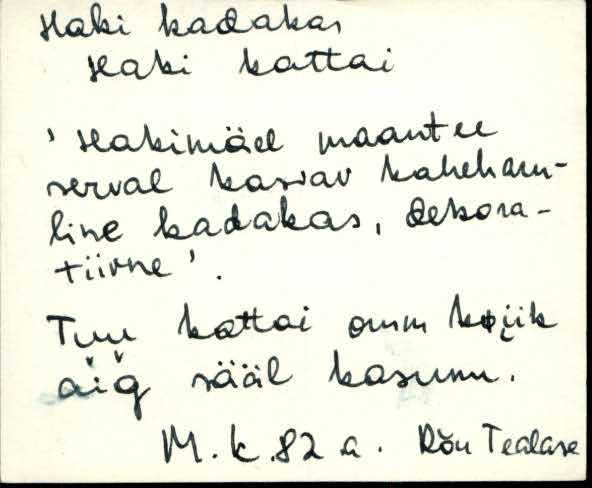 Haki kadakas
Haki kattai
'Hakimäel maantee
serval kasvav kaheharu-
line kadakas, dekora-
tiivne'.
Tuu kattai omm kyik
aig sääl kasunu.
M. k. 82 a. Rõu Tealase